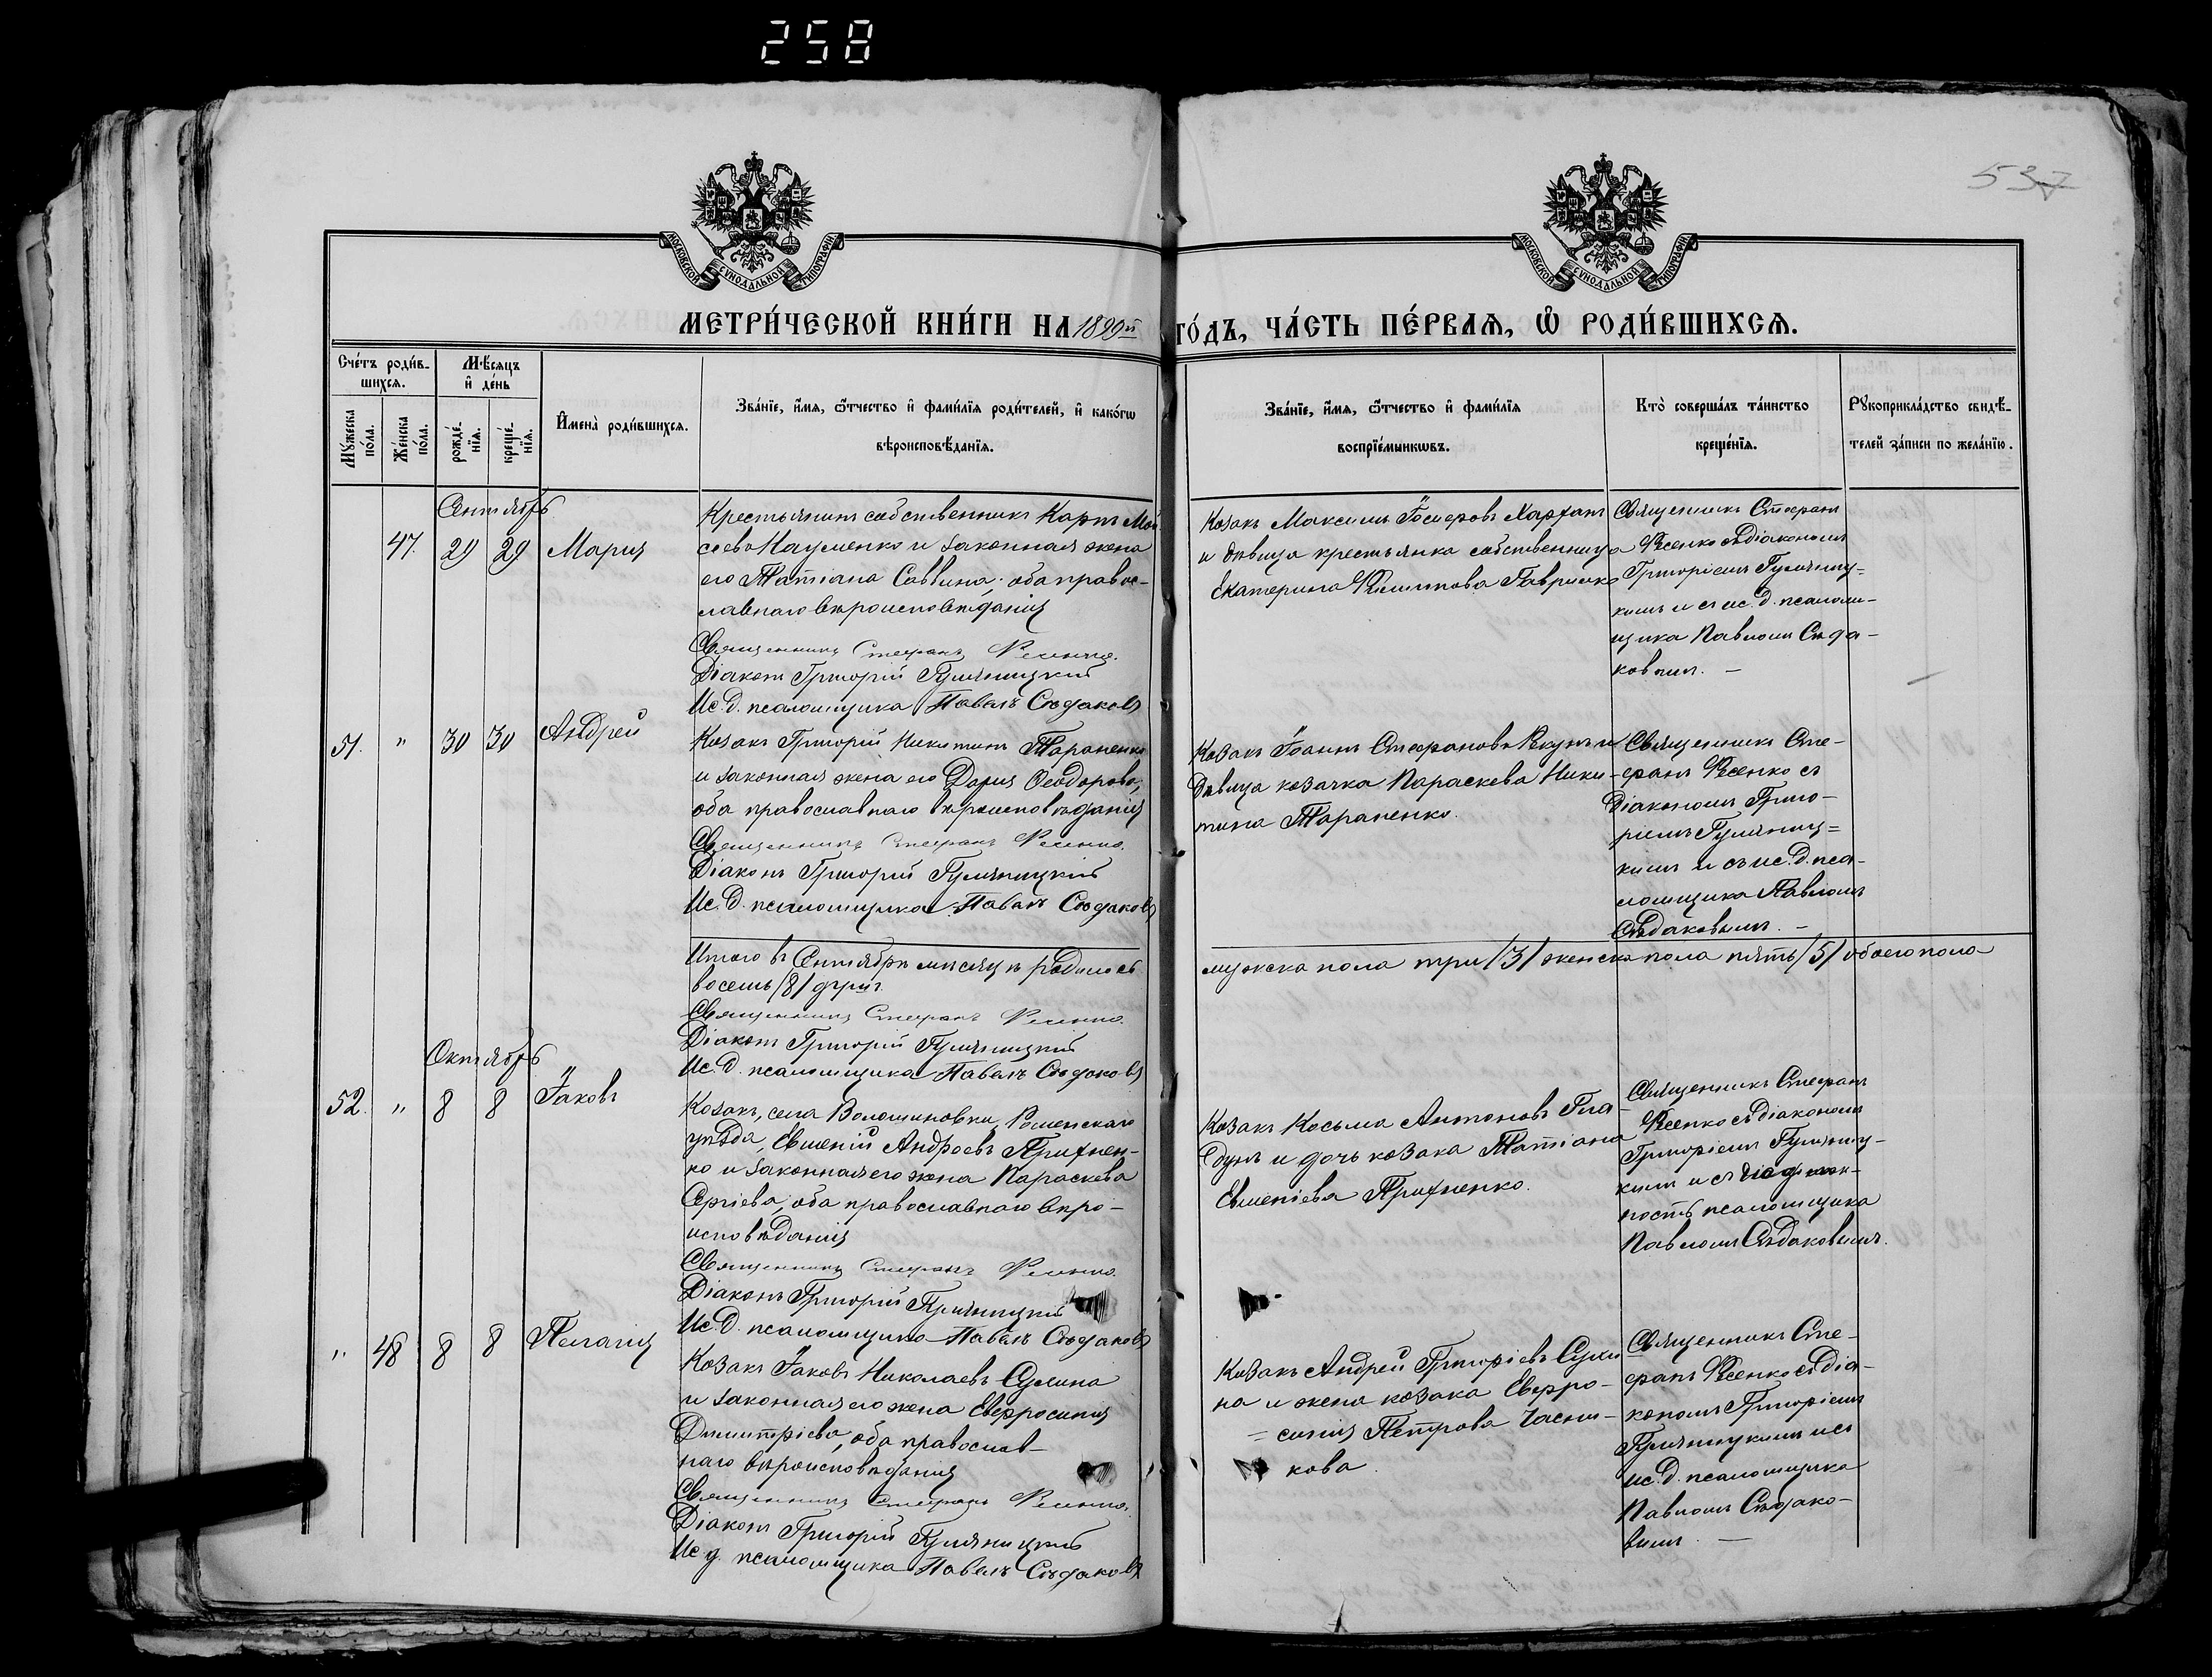 258
537
МОСКОВСКОЙ СѴНОДАЛЬНОЙ ТИПОГРАФІИ
МОСКОВСКОЙ СѴНОДАЛЬНОЙ ТИПОГРАФІИ
МЕТРИ́ЧЕСКОЙ КНИ́ГИ НА 1899й ГО́ДЪ, ЧА́СТЬ ПЕ́РВАЯ, Ѡ РОДИ́ВШИХСЯ.
Сче́тъ роди́в-
шихся.
Мꙋ́жеска по́ла.
Же́нска по́ла.
Мѣ́сяцъ
и де́нь
рожде́-нїя.
креще́-нїя.
Имена̀ роди́вшихся.
Зва́нїе, и́мя, ѻ́тчество и фами́лїя роди́телей, и како́гѡ
вѣроисповѣ́данїя.
Зва́нїе, и́мя, ѻ́тчество и фами́лїя
воспрїе́мникѡвъ.
Кто̀ соверша́лъ та́инство
креще́нїя.
Рꙋкоприкла́дство свидѣ́-
телей за́писи по жела́нїю.
Сентябрь
47. 29 29 Марія
Крестьянинъ собственникъ Карпъ Мои
сеевъ Науменко и законная жена
его Татіана Саввина, оба правос-
лавнаго вѣроисповѣданія
Священникъ Стефанъ
Діаконъ Григорій
Ис. д. псаломщика Павелъ Сѣдаковъ
Козакъ Максимъ
и дѣвица крестьянка собственница
Екатерина Филиппова Гавриленко
Священникъ Стефанъ
съ діакономъ
Григоріемъ
кимъ и съ ис. д. псалом-
щика Павломъ Сѣда-
ковымъ. —
51. " 30 30 Андрей
Козакъ Григорій Никитинъ Тараненко
и законная жена его Дарія Ѳеодорова,
оба православнаго вѣроисповѣданія
Священникъ Стефанъ
Діаконъ Григорій
Ис. д. псаломщика Павелъ Сѣдаковъ
Козакъ Іоаннъ Стефановъ и
дѣвица козачка Параскева Ники-
тина Тараненко.
Священникъ Сте-
фанъ съ
діакономъ Григо-
ріемъ
кимъ и съ ис. д. пса-
ломщика Павломъ
Сѣдаковымъ. —
Итого въ Сентябрѣ мѣсяцѣ родилось мужска пола три /3/ женска пола пять /5/ обоего пола
восемь /8/ душъ.
Священникъ Стефанъ
Діаконъ Григорій
Ис. д. псаломщика Павелъ Сѣдаковъ
Октябрь
52. " 8 8 Іаковъ
Козакъ, села Волошиновки, Роменскаго
уѣзда, Евменій Андреевъ Прихнен-
ко и законная его жена Параскева
Сергіева, оба православнаго вѣро-
исповѣданія
Священникъ Стефанъ
Діаконъ Григорій
Ис. д. псаломщика Павелъ Сѣдаковъ
Козакъ Косьма Антоновъ Гла-
дунъ и дочь козака Татіана
Евменіева Прихненко.
Священникъ Стефанъ
съ діакономъ
Григоріемъ
кимъ и съ
ность псаломщика
Павломъ Сѣдаковымъ.
" 48 8 8 Пелагія
Козакъ Іаковъ Николаевъ Сулима
и законная его жена Евфросинія
Димитріева, оба православ-
наго вѣроисповѣданія
Священникъ Стефанъ
Діаконъ Григорій
Ис. д. псаломщика Павелъ Сѣдаковъ
Козакъ Андрей Григоріевъ Сули
на и жена козака Евфро-
= синія Петрова Часни-
кова.
Священникъ Сте-
фанъ съ діа-
кономъ Григоріемъ
и съ
ис. д. псаломщика
Павломъ Сѣдако-
вымъ. —